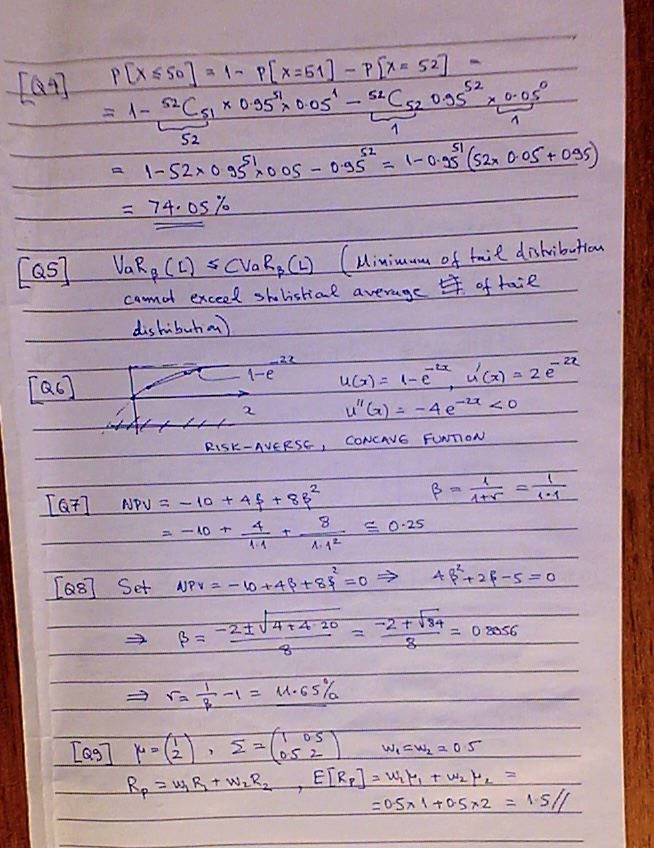 [Q4] P[X≤50] = 1- P[X=51] - P[X= 52] =
= 1- ⁵²C₅₁ x 0.95⁵¹ x 0.05¹ - ⁵²C₅₂ 0.95⁵² x 0.05⁰
52 1 1
= 1-52x0.95⁵¹x0.05 - 0.95⁵² = 1-0.95⁵¹(52x 0.05+0.95)
= 74.05%
[Q5] VaRᵦ(L) ≤ CVaRᵦ(L) (Minimum of tail distribution
cannot exceed statistical average of tail
distribution)
[Q6] 1-e⁻²ˣ u(x) = 1-e⁻²ˣ, u'(x) = 2e⁻²ˣ
x u"(x) = -4e⁻²ˣ <0
RISK-AVERSE, CONCAVE FUNTION
[Q7] NPV = -10 + 4β + 8β² β = 1/1+r = 1/1.1
= -10 + 4/1.1 + 8/1.1² ≅ 0.25
[Q8] Set NPV = -10+4β+8β²=0 ⇒ 4β²+2β-5=0
⇒ β = -2±√4+4.20/8 = -2+√84/8 = 0.8956
⇒ r= 1/β -1 = 11.65%
[Q9] μ=(1 2), Σ=(1 0.5 0.5 2) w₁=w₂=0.5
Rₚ = w₁R₁ + w₂R₂, E[Rₚ] = w₁μ₁ + w₂μ₂ =
=0.5x1+0.5x2 = 1.5//